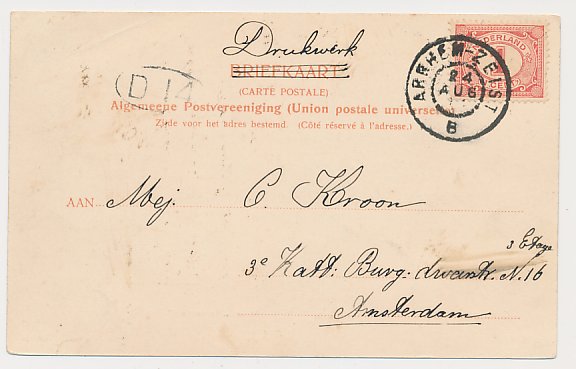 Drukwerk
BRIEFKAART
(CARTE POSTALE)
Algemeene Postvereeniging (Union postale universe
Zijde voor het adres bestemd. (Côté réservé à l'adresse.)
NEDERLAND
1
CE
ARNHEM-ZEIST
24
AUG
B
(D 14
AAN Mej. C. Kroon
3 Etage
3e Katt. Burg. dwarstr. N. 16
Amsterdam